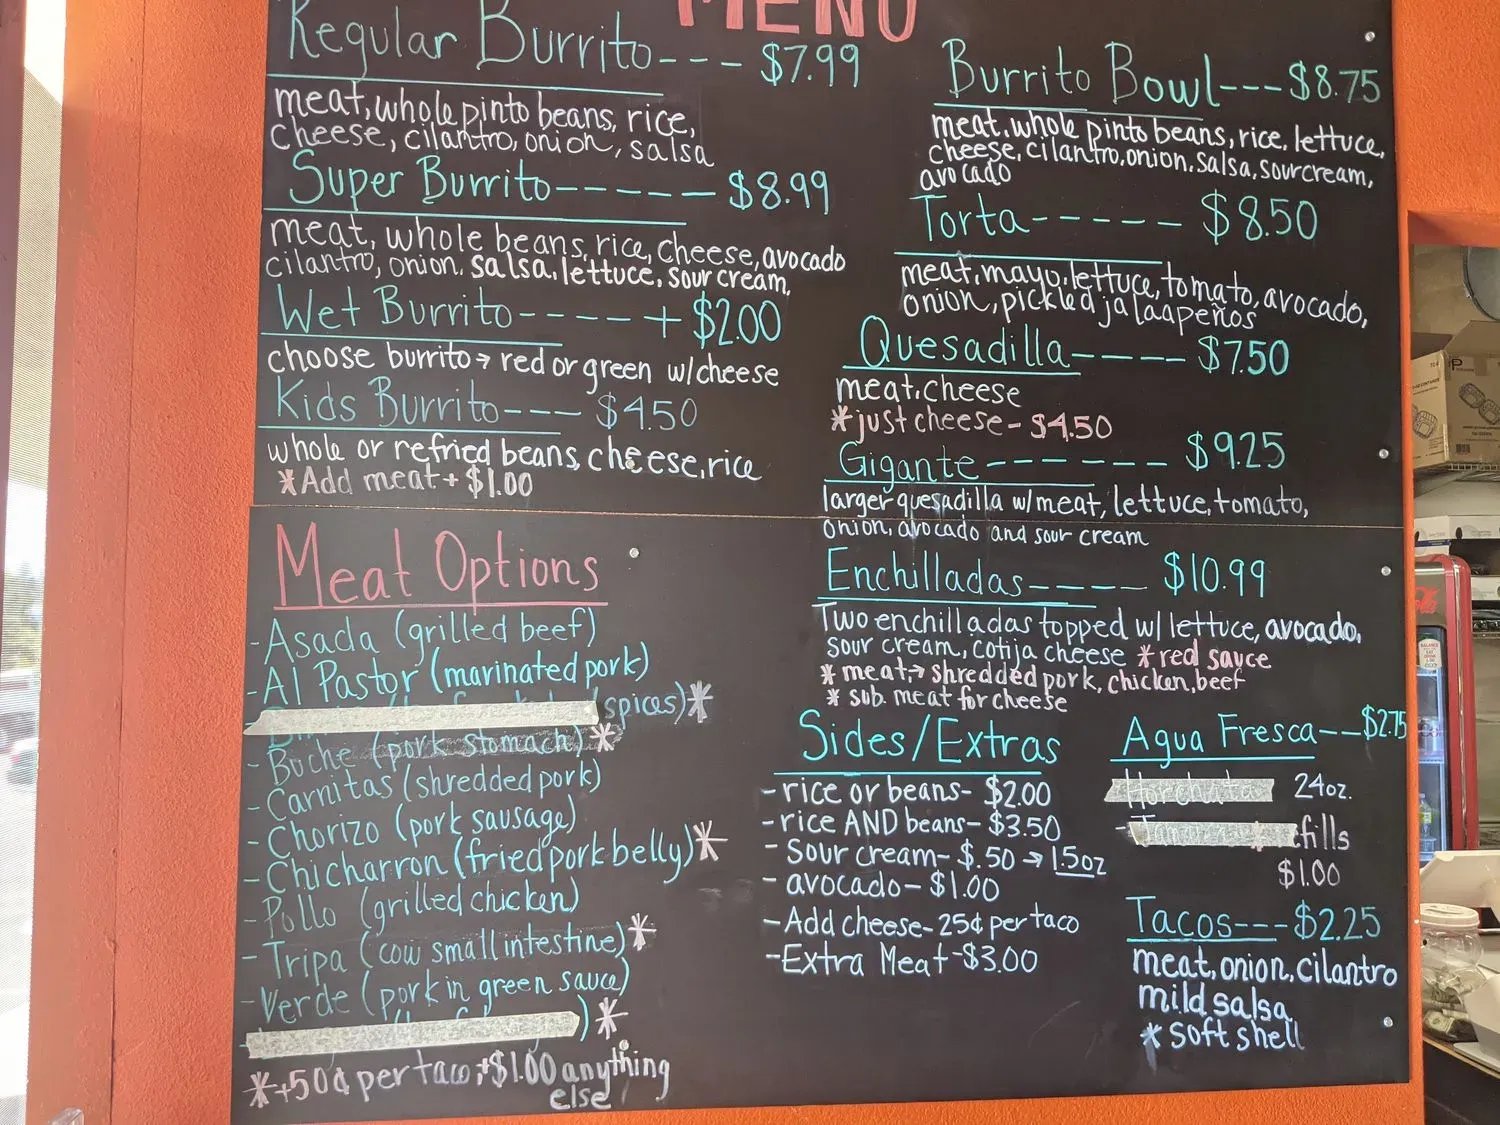 MENU
Regular Burrito--- $7.99
meat, whole pinto beans, rice,
cheese, cilantro, onion, salsa
Super Burrito------ $8.99
meat, whole beans, rice, cheese, avocado
cilantro, onion, salsa, lettuce, sour cream,
Wet Burrito-----+ $2.00
choose burrito→ red or green w/cheese
Kids Burrito--- $4.50
whole or refried beans, cheese, rice
*Add meat + $1.00
Meat Options
-Asada (grilled beef)
-Al Pastor (marinated pork)
spices)*
-Buche (pork stomach)*
-Carnitas (shredded pork)
-Chorizo (pork sausage)
-Chicharron (fried pork belly)*
-Pollo (grilled chicken)
-Tripa (cow small intestine)*
-Verde (pork in green sauce)
)*
*+50¢ per taco, +$1.00 anything
else
Burrito Bowl---$8.75
meat, whole pinto beans, rice, lettuce,
cheese, cilantro, onion, salsa, sour cream,
avocado
Torta----- $8.50
meat, mayo, lettuce, tomato, avocado,
onion, pickled jalaapeños
Quesadilla---- $7.50
meat, cheese
*just cheese- $4.50
Gigante------ $9.25
larger quesadilla w/meat, lettuce, tomato,
onion, avocado and sour cream
Enchilladas---- $10.99
Two enchilladas topped w/ lettuce, avocado,
sour cream, cotija cheese *red sauce
*meat→ shredded pork, chicken, beef
* sub. meat for cheese
Sides/Extras
-rice or beans- $2.00
-rice AND beans- $3.50
- sour cream- $.50 → 1.5oz
- avocado- $1.00
-Add cheese- 25¢ per taco
-Extra Meat-$3.00
Agua Fresca--$2.75
Horchata 24oz.
efills
$1.00
Tacos---$2.25
meat, onion, cilantro
mild salsa
* soft shell